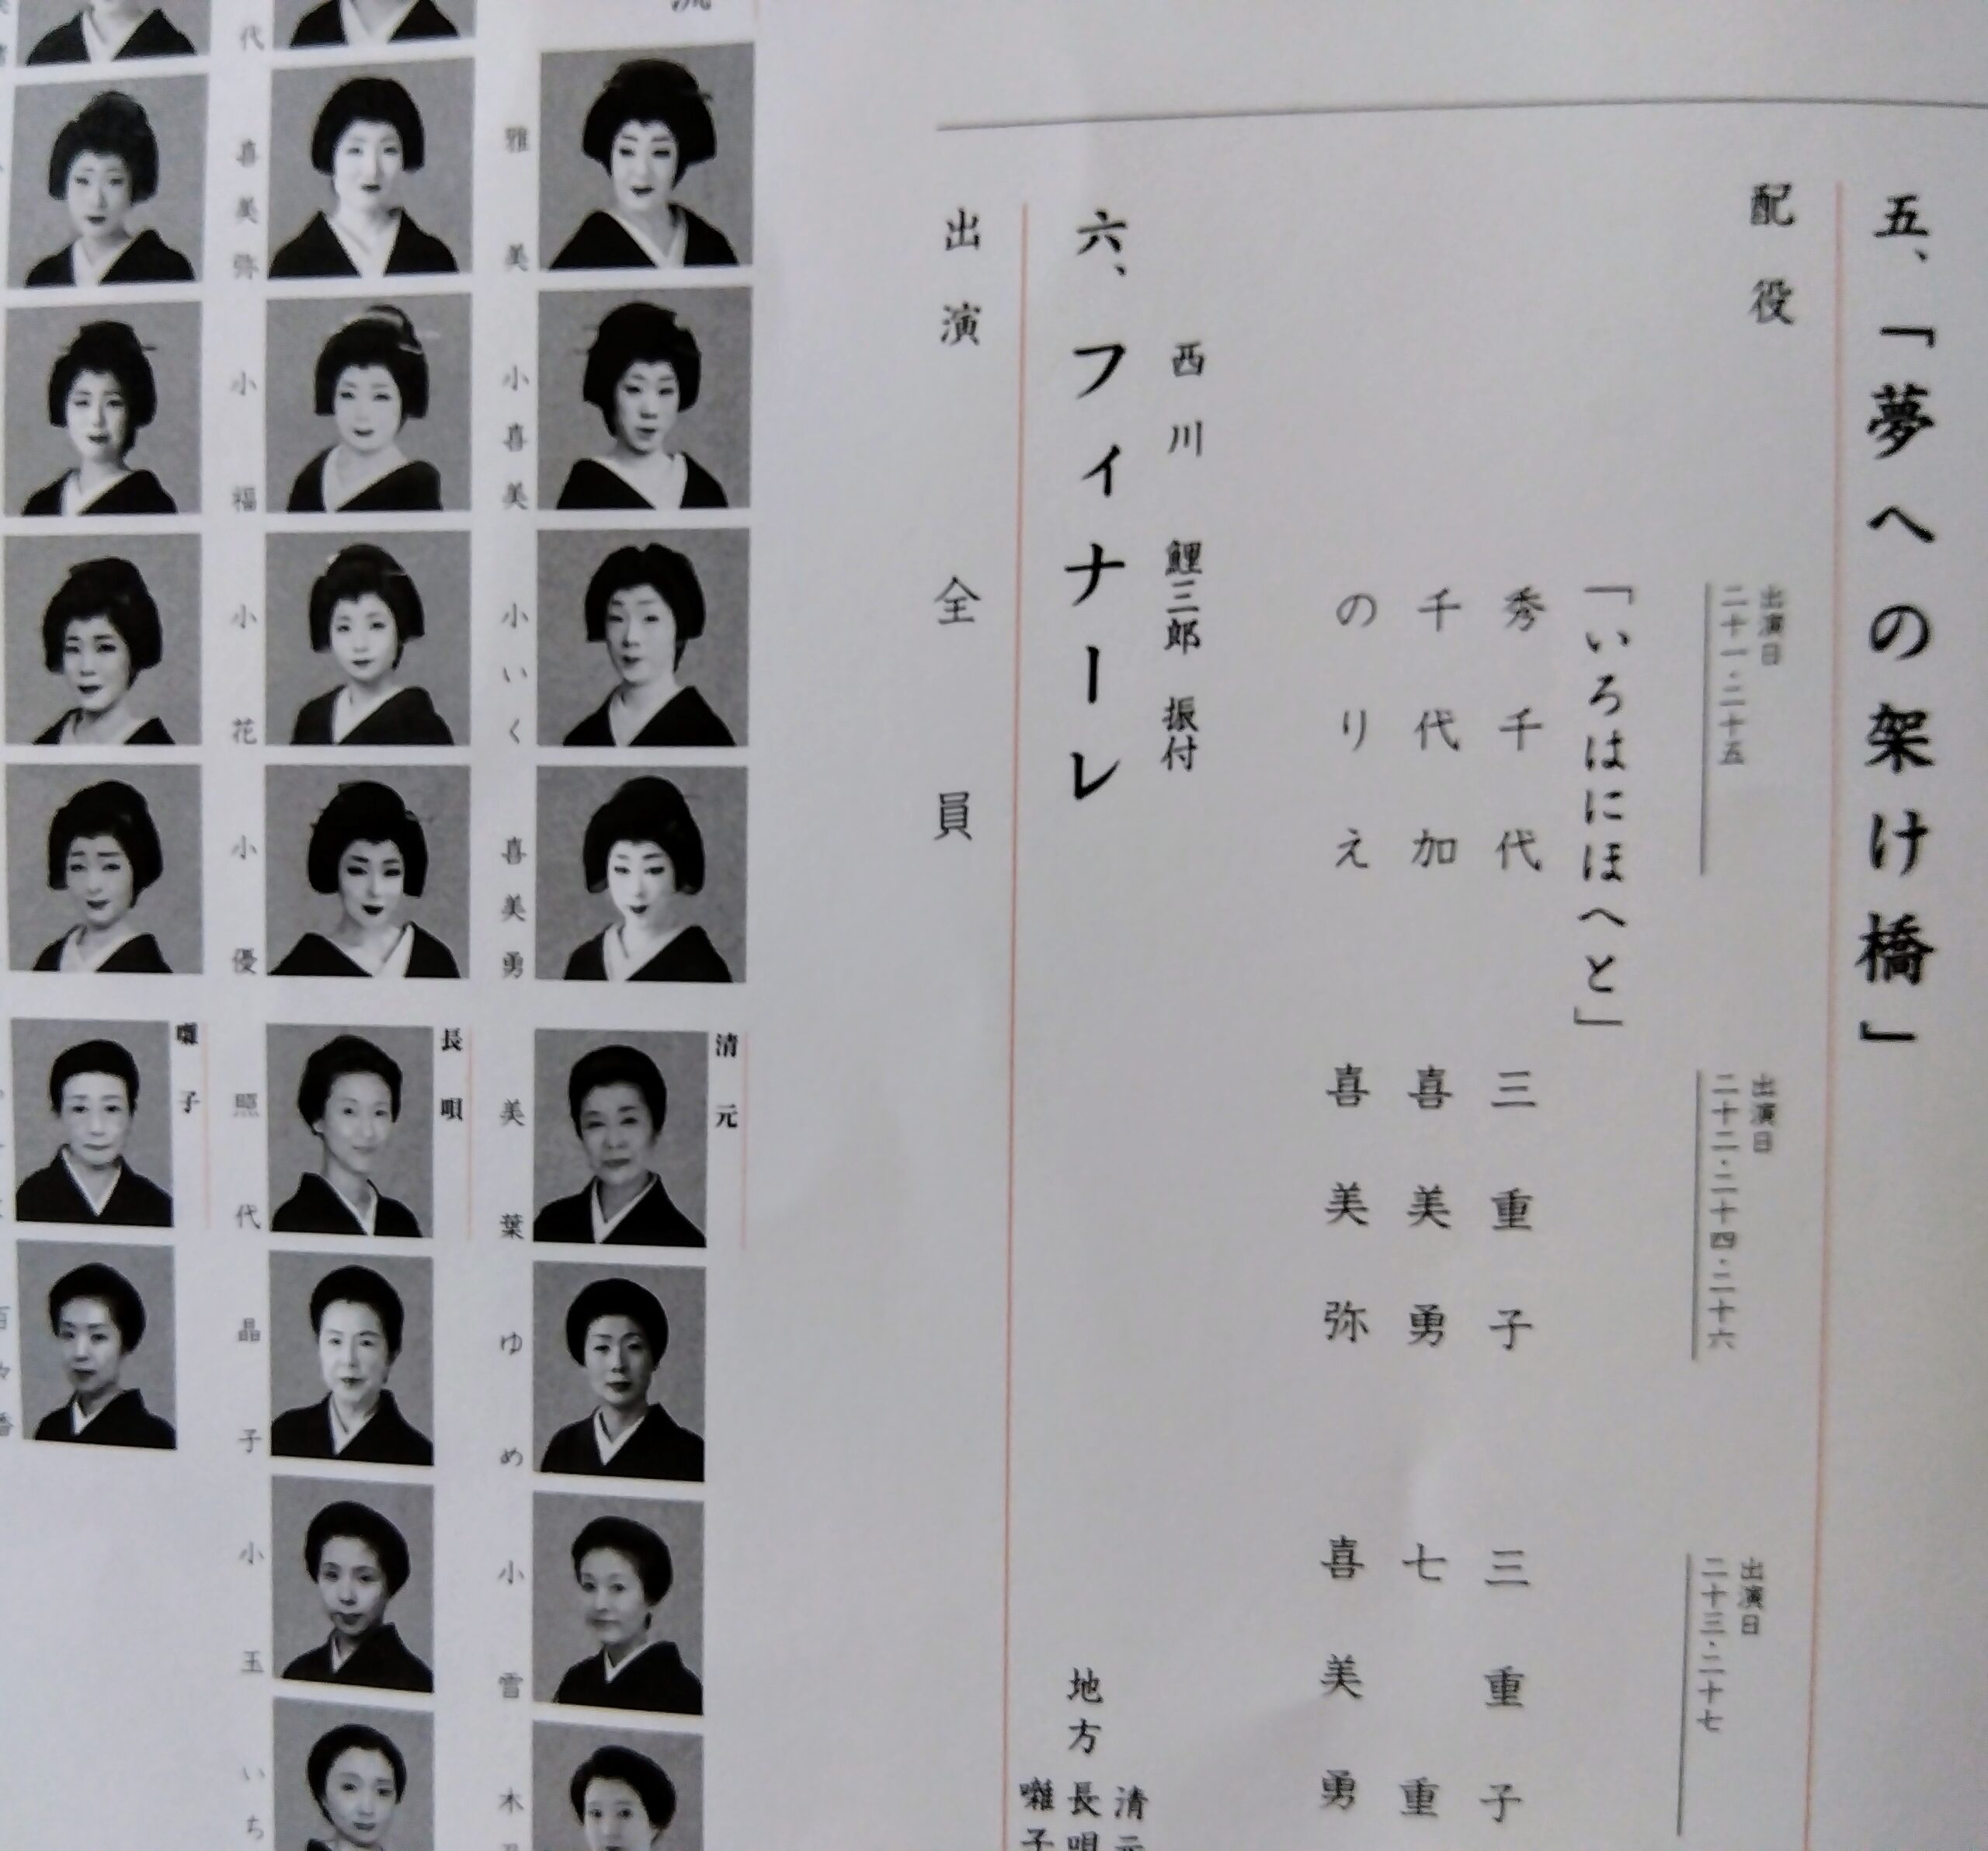 五、「夢への架け橋」
配役
出演日
二十一・二十五
出演日
二十二・二十四・二十六
出演日
二十三・二十七
「いろはにほへと」
秀千代
三重子
三重子
千代加
喜美勇
七重
のりえ
喜美弥
喜美勇
西川 鯉三郎 振付
六、フィナーレ
地方
清元
長唄
囃子
出演 全員
流
雅美
小喜美
小いく
喜美勇
清元
美葉
ゆめ
小雪
木
代
喜美弥
小福
小花
小優
長唄
照代
晶子
小玉
いち
囃子